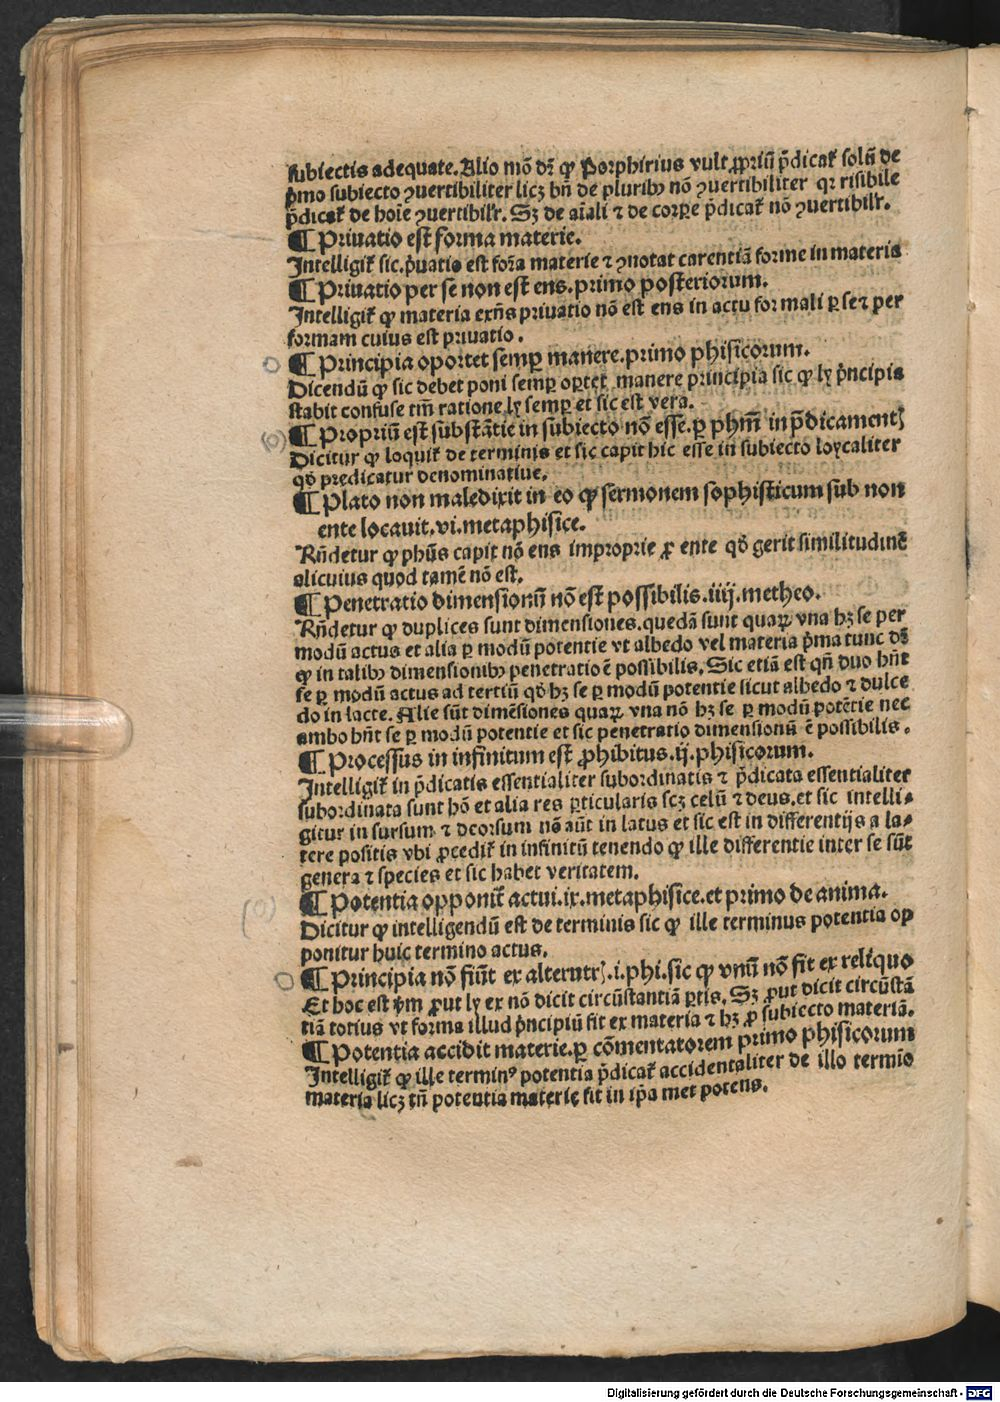 subiectis adequate. Alio mō dr̄ ꝙ Porphirius vult ꝓpriū p̄dicat᷑ solū de
p̄mo subiecto ꝯuertibiliter licꝫ bn̄ de pluribꝰ nō ꝯuertibiliter qꝛ risibile
p̄dicat᷑ de hoīe ꝯuertibilr̄. Sꝫ de aīali ⁊ de corpe p̄dicat᷑ nō ꝯuertibilr̄.
¶ Priuatio est forma materie.
Intelligit᷑ sic. p̄uatio est forma materie ⁊ ꝯnotat carentiā forme in materia
¶ Priuatio per se non est ens. primo posteriorum.
Intelligit᷑ ꝙ materia exn̄s priuatio nō est ens in actu formali ꝑ se ⁊ per
formam cuius est priuatio.
¶ Principia oportet semꝑ manere. primo phisicorum.
Dicendū ꝙ sic debet poni semꝑ oꝑtet manere principia sic ꝙ ly p̄ncipia
stabit confuse tm̄ ratione ly semꝑ et sic est vera.
¶ Propriū est substātie in subiecto nō esse. ꝑ phm̄ in p̄dicamentꝭ
Dicitur ꝙ loquit᷑ de terminis et sic capit hic esse in subiecto loycaliter
qď predicatur denominatiue.
¶ Plato non maledixit in eo ꝙ sermonem sophisticum sub non
ente locauit. vi. metaphisice.
Rn̄detur ꝙ phūs capit nō ens improprie ꝓ ente qď gerit similitudinē
alicuius quod tamē nō est.
¶ Penetratio dimensionū nō est possibilis. iiij. metheo.
Rn̄detur ꝙ duplices sunt dimensiones. quedā sunt quaꝝ vna hꝫ se per
modū actus et alia ꝑ modū potentie vt albedo vel materia p̄ma tunc dr̄
ꝙ in talibꝰ dimensionibꝰ penetratio ē possibilis. Sic etiā est qn̄ duo hn̄t
se ꝑ modū actus ad tertiū qď hꝫ se ꝑ modū potentie sicut albedo ⁊ dulce
do in lacte. Alie sūt dimēsiones quaꝝ vna nō hꝫ se ꝑ modū potētie nec
ambo hn̄t se ꝑ modū potentie et sic penetratio dimensionū ē possibilis.
¶ Processus in infinitum est ꝓhibitus. ij. phisicorum.
Intelligit᷑ in p̄dicatis essentialiter subordinatis ⁊ p̄dicata essentialiter
subordinata sunt hō et alia res ꝑticularis scꝫ celū ⁊ deus. et sic intelli⸗
gitur in sursum ⁊ deorsum nō aūt in latus et sic est in differentijs a la⸗
tere positis vbi ꝓcedit᷑ in infinitū tenendo ꝙ ille differentie inter se sūt
genera ⁊ species et sic habet veritatem.
¶ Potentia opponit᷑ actui. ix. metaphisice. et primo de anima.
Dicitur ꝙ intelligendū est de terminis sic ꝙ ille terminus potentia op
ponitur huic termino actus.
¶ Principia nō fiūt ex alterutrꝭ. i. phi. sic ꝙ vnū nō fit ex reliquo
Et hoc est ꝓut ly ex nō dicit circūstantiā ꝑtis. Sꝫ ꝓut dicit circūstā
tiā totius vt forma illud p̄ncipiū fit ex materia ⁊ hꝫ ꝓ subiecto materiā.
¶ Potentia accidit materie. ꝑ cōmentatorem primo phisicorum
Intelligit᷑ ꝙ ille terminꝰ potentia p̄dicat᷑ accidentaliter de illo termīo
materia licꝫ tn̄ potentia materie sit in ip̄a met potens.
Digitalisierung gefördert durch die Deutsche Forschungsgemeinschaft - DFG